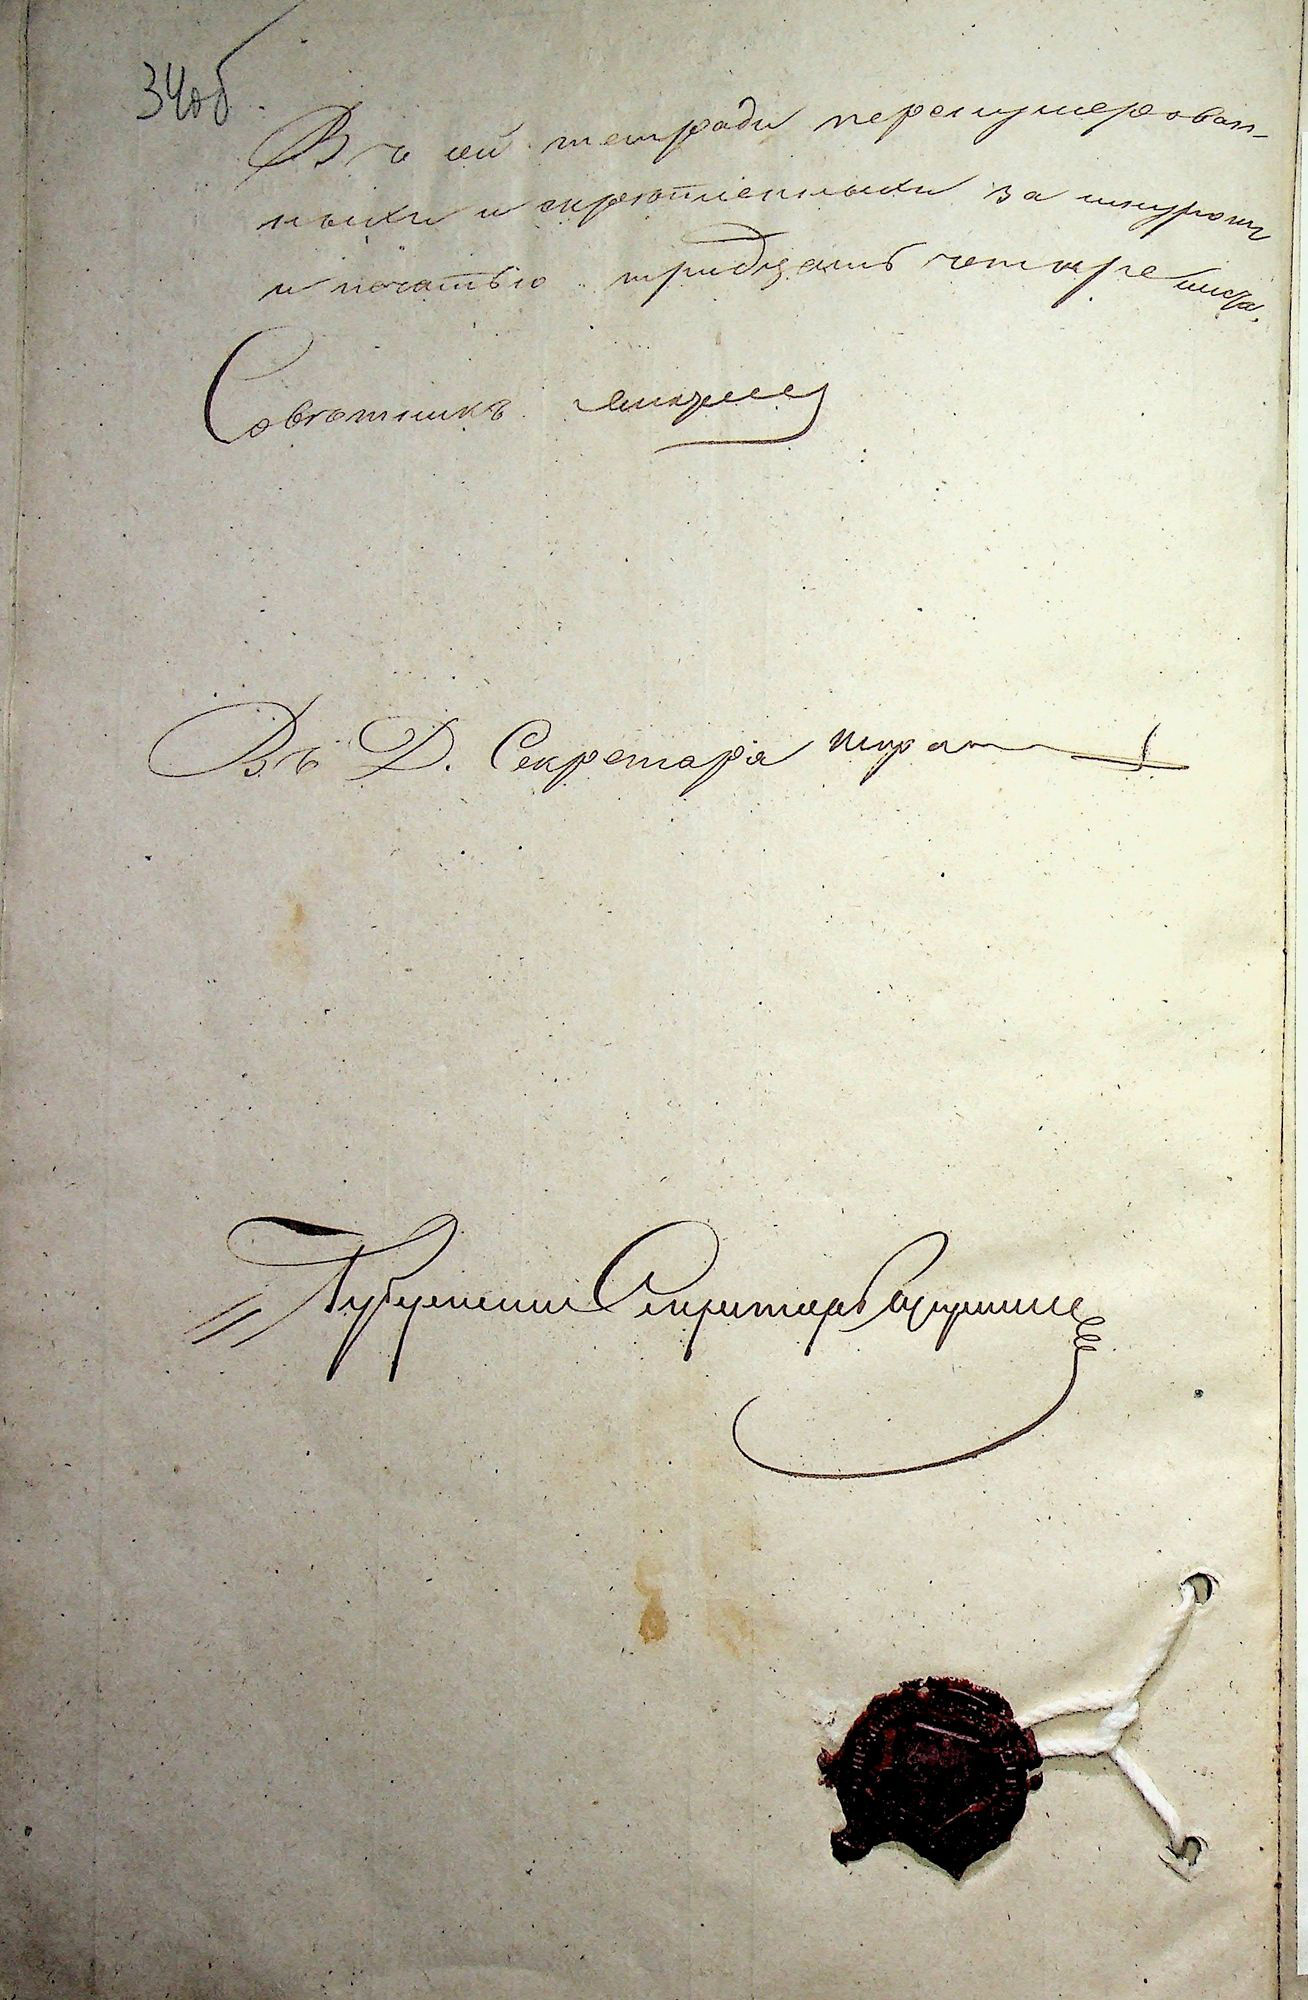 34об
Въ сей тетради перенумерован-
ныхъ и скрѣпленныхъ за шнуромъ
и печатью тридцать четыре листа.
Совѣтникъ
Въ Д. Секретаря
Губернскій Секретарь